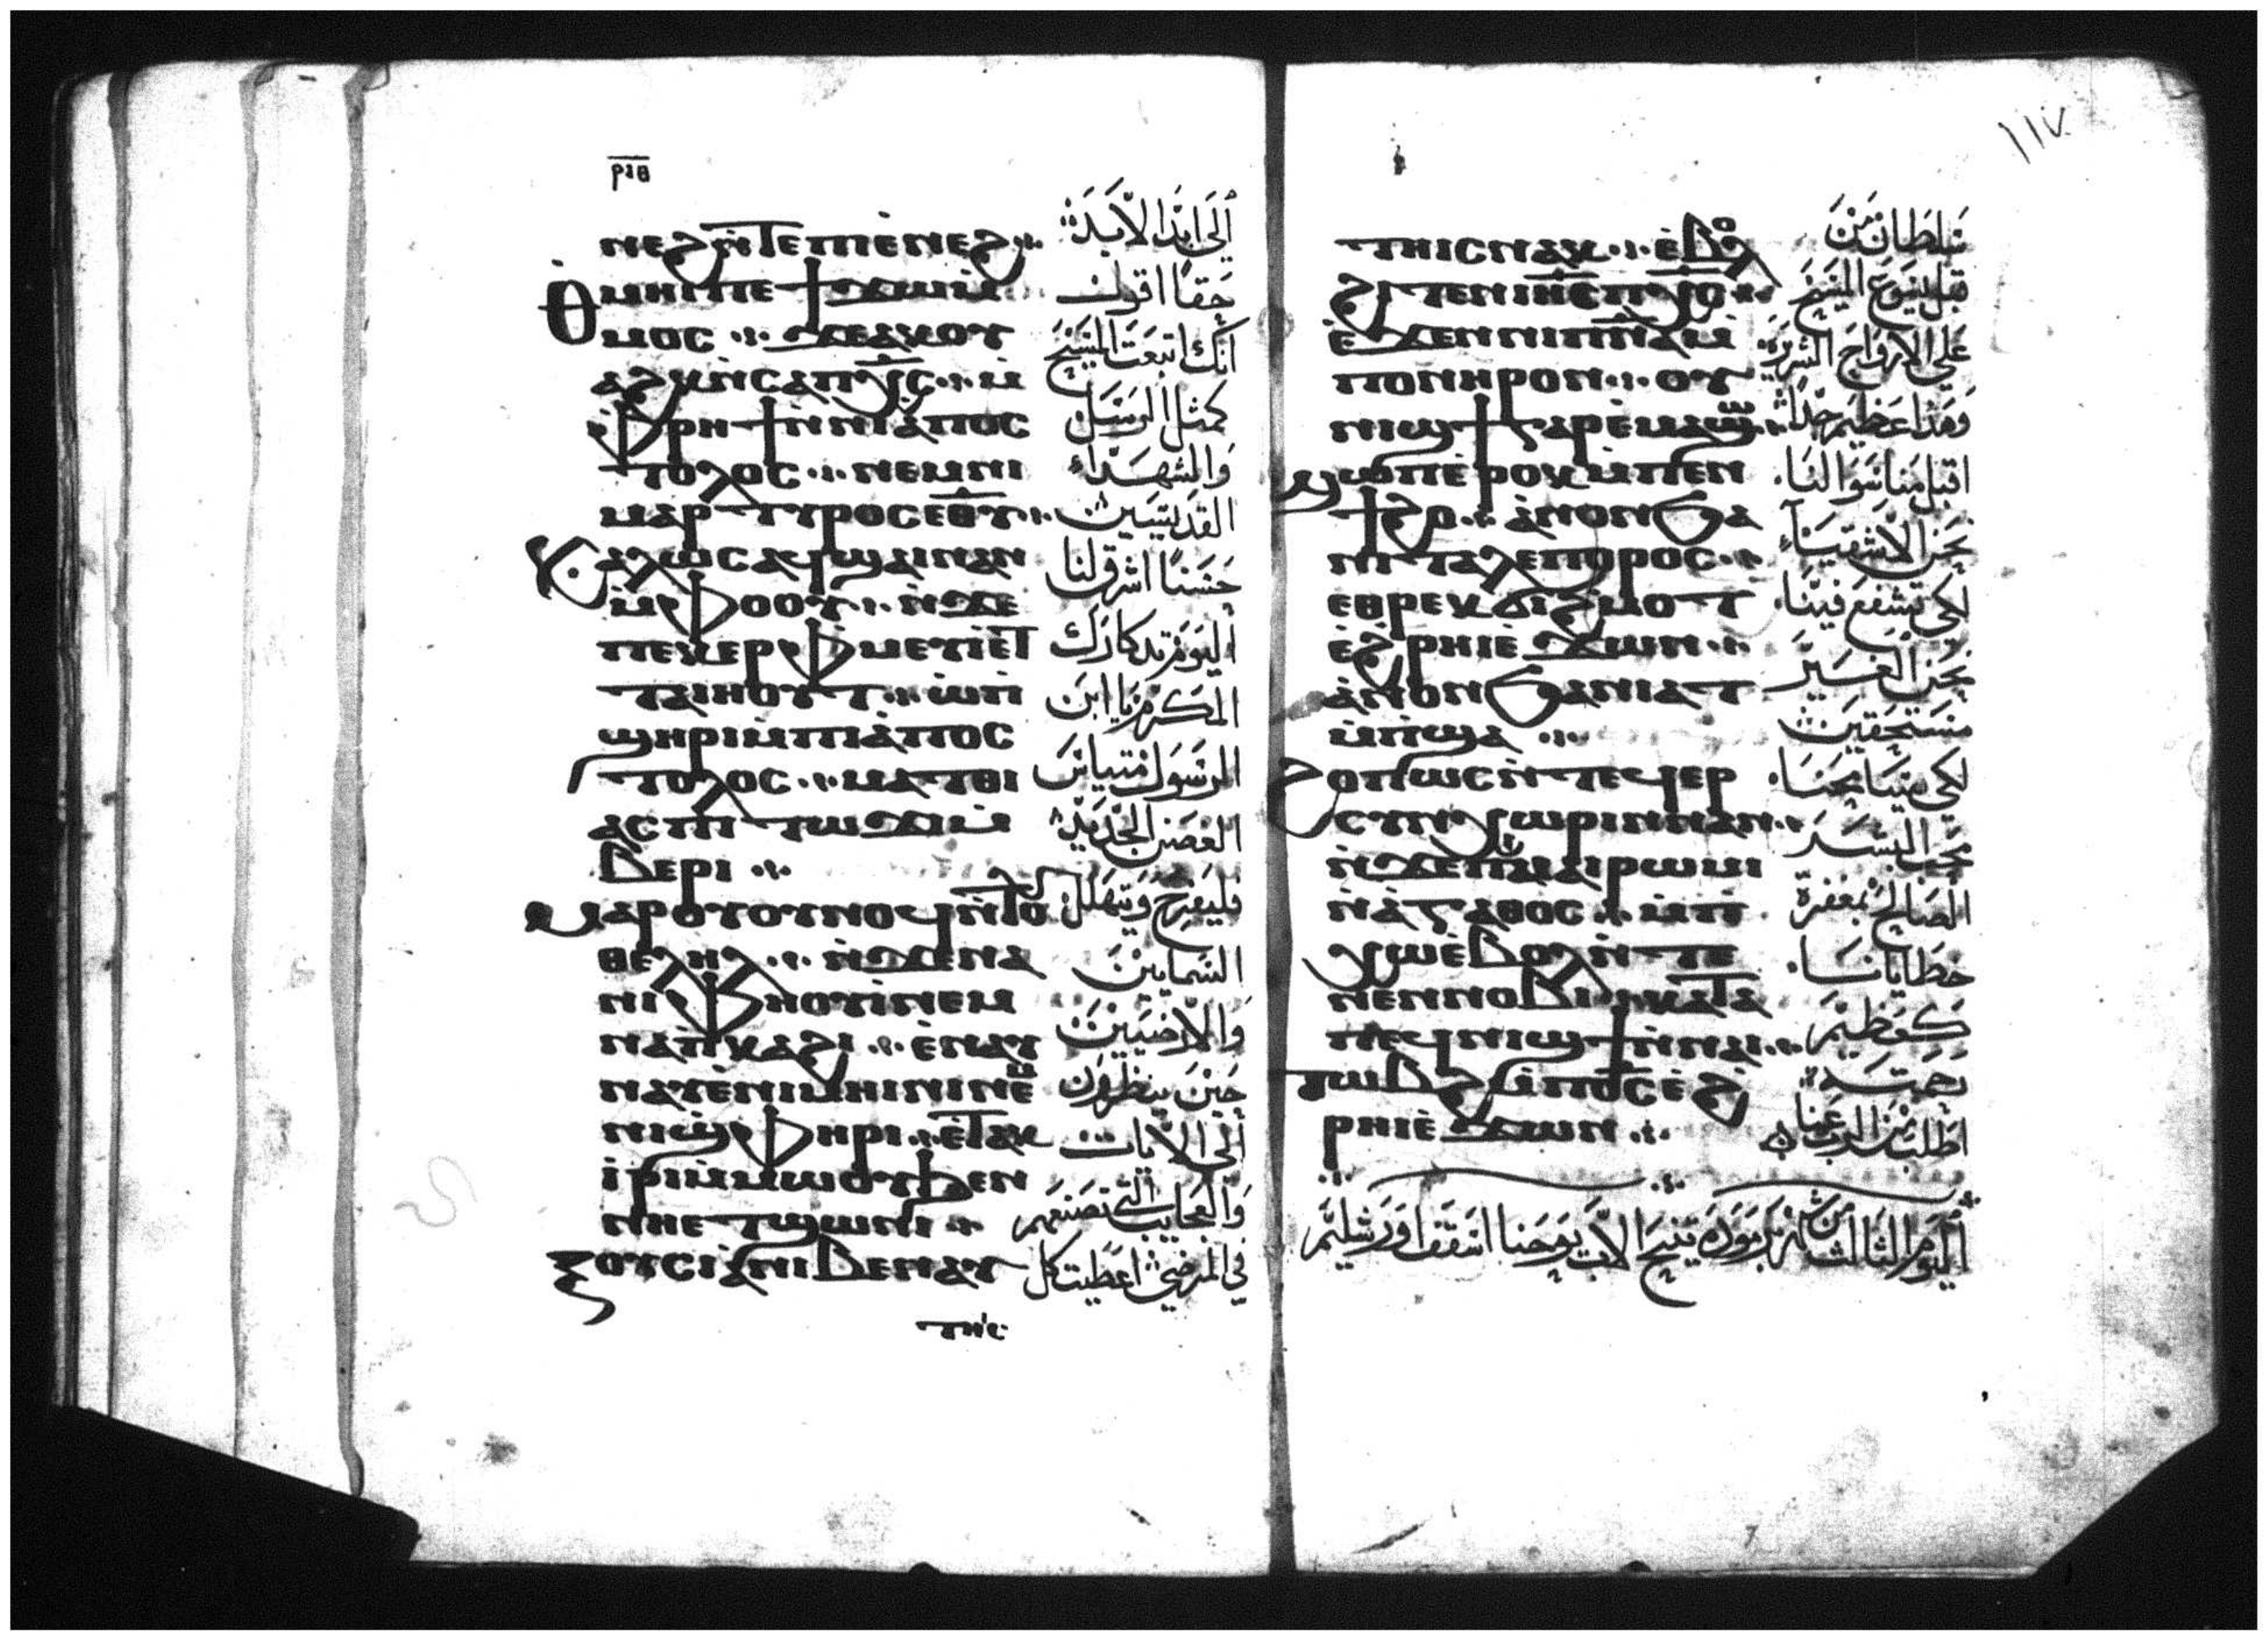 ⲣⲓⲑ
ⲛⲉϩ ⲛ̀ⲧⲉ ⲡⲓⲉ̀ⲛⲉϩ
ⲑⲙⲏⲓ ⲡⲉ ϯϫⲱ ⲙ̀
ⲙⲟⲥ ϫⲉ ⲁⲕⲟⲩ
ⲁϩⲕ ⲛ̀ⲥⲁ ⲡⲭ̅ⲥ̅ ⲙ̀
ⲫⲣⲏϯ ⲛ̀ⲛⲓⲁ̀ⲡⲟⲥ
ⲧⲟⲗⲟⲥ ⲛⲉⲙ ⲛⲓ
ⲙⲁⲣⲧⲩⲣⲟⲥ ⲉⲑⲩ
ⲕⲁⲗⲱⲥ ⲁϥϣⲁⲓ ⲛⲁⲛ
ⲙ̀ⲫⲟⲟⲩ ⲛ̀ϫⲉ
ⲡⲉⲕⲉⲣⲫⲙⲉⲩⲓ̀ ⲉ̀ⲧ
ⲧⲁⲓⲏⲟⲩⲧ ⲱ̀ ⲡⲓ
ϣⲏⲣⲓ ⲙ̀ⲡⲓⲁ̀ⲡⲟⲥ
ⲧⲟⲗⲟⲥ ⲙⲁⲧⲑⲓ
ⲁⲥ ⲡⲓⲧⲱϫⲓ ⲙ̀
ⲃⲉⲣⲓ
ⲙⲁⲣⲟⲩⲟⲩⲛⲟϥ ⲛ̀ⲧⲟⲩ
ⲑⲉⲗⲏⲗ ⲛ̀ϫⲉ ⲛⲁ
ⲛⲓⲫⲏⲟⲩⲓ̀ ⲛⲉⲙ
ⲛⲁ ⲡ̀ⲕⲁϩⲓ ⲉ̀ⲛⲁⲩ
ⲛⲁⲩ ⲉ̀ⲛⲓⲙⲏⲓⲛⲓ ⲛⲉⲙ
ⲛⲓϣⲫⲏⲣⲓ ⲉ̀ⲧⲁⲕ
ⲓ̀ⲣⲓ ⲙ̀ⲙⲱⲟⲩ ϧⲉⲛ
ⲛⲏⲉⲧϣⲱⲛⲓ
ⲝⲟⲩⲥⲓⲁ̀ ⲛⲓⲃⲉⲛ ⲁⲩ
ⲧⲏⲓⲥ
ألى ابد الابد
حقا اقول
انك اتبعت المسيح
كمثل الرسل
والشهداء
القديسين
حسنا اشرق لنا
اليوم تدكارك
المكرم يا ابن
الرسول متياس
الغصن الجديد
فليفرح ويتهلل
السماييين
والارضيين
حين ينظرون
ألى الايات
والعجايب التى تصنعهم
في المرضى اعطيت كل
١١٧
ⲧⲏⲓⲥ ⲛⲁⲕ ⲉ̀ⲃⲟⲗ
ϩⲓⲧⲉⲛ ⲓⲏ̅ⲥ̅ ⲡⲭ̅ⲥ̅
ⲉ̀ϫⲉⲛ ⲛⲓⲡ̅ⲛ̅ⲁ̅ ⲙ̀
ⲡⲟⲛⲏⲣⲟⲛ ⲟⲩ
ⲛⲓϣϯ ⲅⲁⲣ ⲉ̀ⲙⲁϣⲱ
ϣⲱⲡ ⲉ̀ⲣⲟⲕ ⲙ̀ⲡⲉⲛ
ϯϩⲟ ⲁ̀ⲛⲟⲛ ϧⲁ
ⲛⲓⲧⲁⲗⲉⲡⲟⲣⲟⲥ
ⲉⲑⲣⲉⲕϭⲓϩⲙⲟⲧ
ⲉ̀ϩⲣⲏⲓ ⲉ̀ϫⲱⲛ
ⲁ̀ⲛⲟⲛ ϧⲁ ⲛⲓⲁⲧ
ⲙ̀ⲡϣⲁ
ϩⲟⲡⲱⲥ ⲛ̀ⲧⲉϥⲉⲣ
ⲥⲩⲛⲭⲱⲣⲓⲛ ⲛⲁⲛ
ⲛ̀ϫⲉ ⲡⲓⲙⲁⲓⲣⲱⲙⲓ
ⲛ̀ⲁ̀ⲅⲁⲑⲟⲥ ⲙ̀ⲡⲓ
ⲭⲱ ⲉ̀ⲃⲟⲗ ⲛ̀ⲧⲉ
ⲛⲉⲛⲛⲟⲃⲓ ⲕⲁⲧⲁ
ⲡⲉϥⲛⲓϣϯ ⲛ̀ⲛⲁⲓ
ⲧⲱⲃϩ ⲙ̀ⲡⲟ̅ⲥ̅ ⲉ̀ϩ
ⲣⲏⲓ ⲉ̀ϫⲱⲛ
سلطان من
قبل يسوع المسيح
على الارواح الشريره
وهذا عظيم جدا
اقبل منا سوالنا
نحن الاشقياء
لكي تشفع فينا
نحن الغير
مستحقين
لكي يسامحنا
محب البشر
الصالح بمغفرة
خطايانا
كعظيم
رحمته
اطلب من الرب عنا
أليوم الثالث من شهر برموده تنيح الاب يوحنا اسقف اورشليم